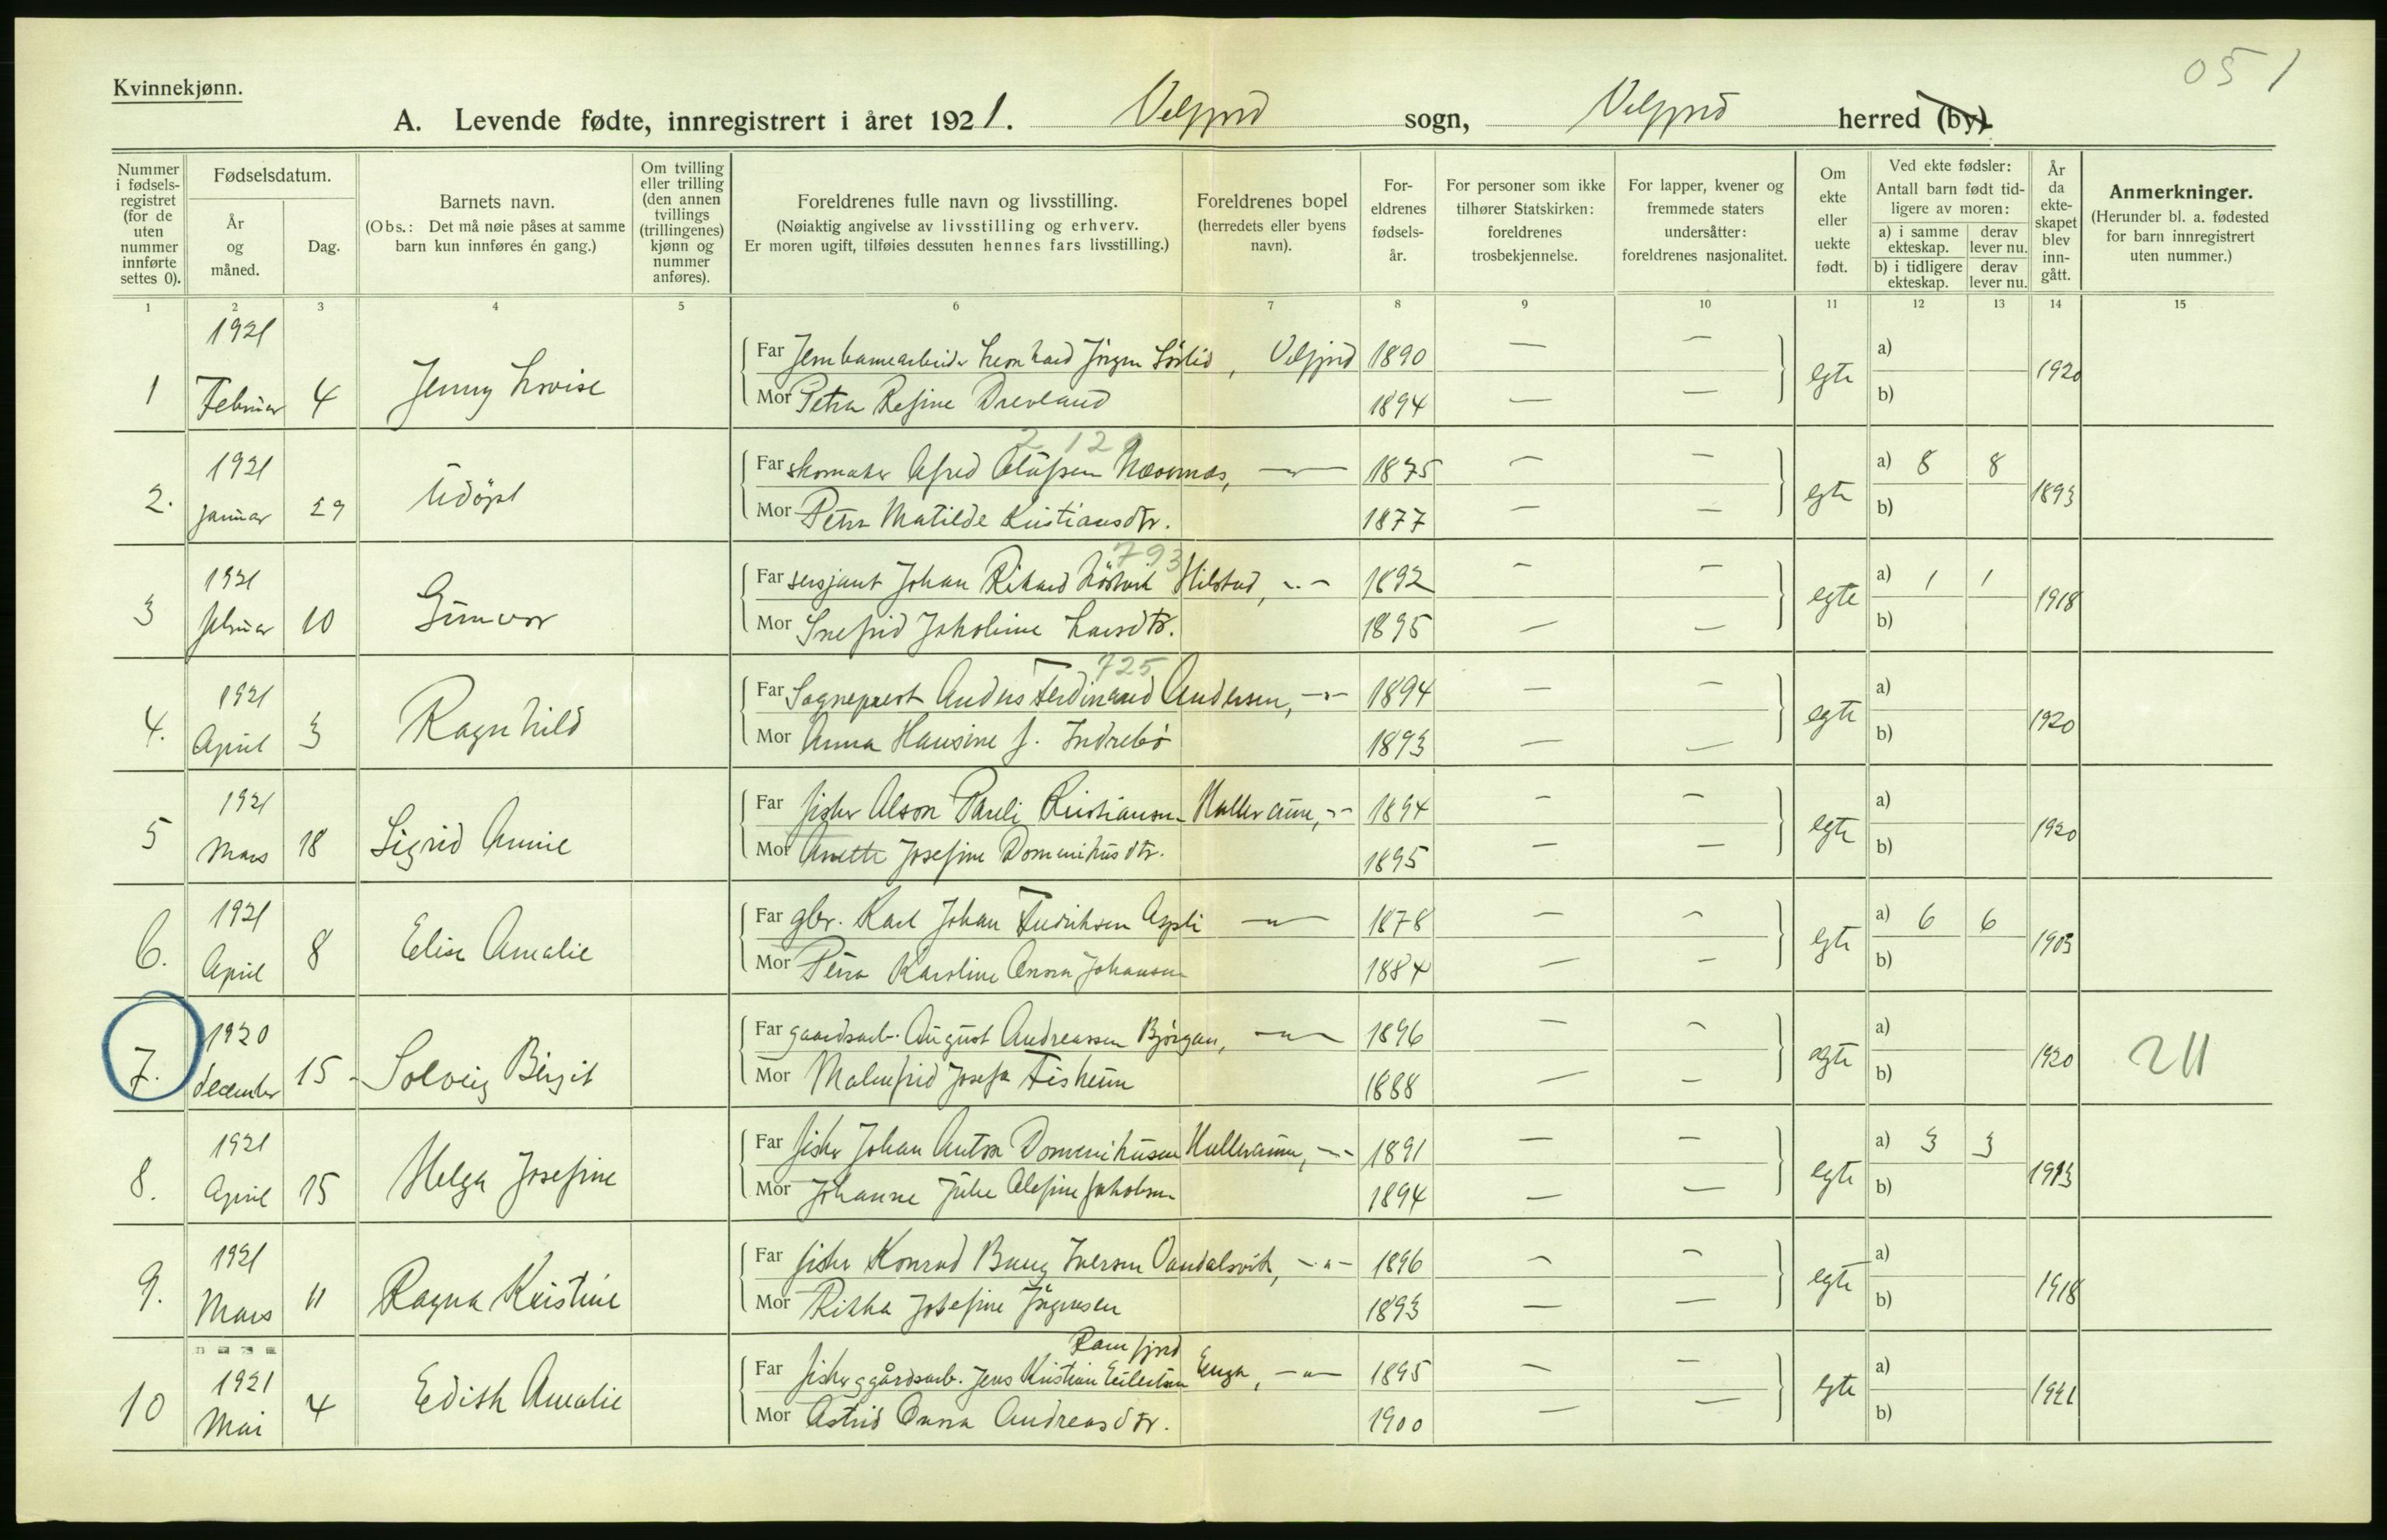 051
Kvinnekjønn.
A. Levende fødte, innregistrert i året 1921. Velfjord sogn, Velfjord herred (by).
Nummer i fødsels- registret (for de uten nummer innførte settes 0).
Fødselsdatum.
År og måned.
Dag.
Barnets navn.
(Obs.: Det må nøie påses at samme barn kun innføres én gang.)
Om tvilling eller trilling (den annen tvillings (trillingenes) kjønn og nummer anføres).
Foreldrenes fulle navn og livsstilling.
(Nøiaktig angivelse av livsstilling og erhverv.
Er moren ugift, tilføies dessuten hennes fars livsstilling.)
Foreldrenes bopel
(herredets eller byens navn).
For- eldrenes fødsels- år.
For personer som ikke tilhører Statskirken: foreldrenes trosbekjennelse.
For lapper, kvener og fremmede staters undersåtter: foreldrenes nasjonalitet.
Om ekte eller uekte født.
Ved ekte fødsler:
Antall barn født tid- ligere av moren:
a) i samme ekteskap.
derav lever nu.
b) i tidligere ekteskap.
derav lever nu.
År da ekte- skapet blev inn- gått.
Anmerkninger.
(Herunder bl. a. fødested for barn innregistrert uten nummer.)
1 2 3 4 5 6 7 8 9 10 11 12 13 14 15
1 1921 Februar 4 Jenny Lovise
Far Jernbanearbeider Leonhard Jörgen Sörlid, Velfjord 1890 — —
Mor Petra Resine Drevland 1894 — —
egte a) b) 1920
2 12
2. 1921 januar 29 Udöpt
Far skomaker Alfred Olufsen Nævernes, —"— 1875 — —
Mor Petra Matilde Kristiansdtr. 1877 — —
egte a) 8 8 b) 1893
793
3 1921 februar 10 Gunvor
Far sersjant Johan Rikard Hilstad, -"- 1892 — —
Mor Snefrid Jakobine Larsdtr. 1895 — —
egte a) 1 1 b) 1918
725
4. 1921 April 3 Ragnhild
Far Sogneprest Anders Ferdinand Andersen, -"- 1894 — —
Mor Anna Hansine f. Indrebö 1893 — —
egte a) b) 1920
5 1921 Mars 18 Sigrid Annie
Far fisker Alson Pareli Kristiansen Hulleraune, -"- 1894 — —
Mor Anette Josefine Domenikusdtr. 1895 — —
egte a) b) 1920
6. 1921 April 8 Elise Amalie
Far gbr. Karl Johan Fredriksen Aspli —"— 1878 — —
Mor Petra Karoline Anna Johansen 1884 — —
egte a) 6 6 b) 1903
7. 1920 december 15 Solveig Birgit
Far gaardsarb. August Andreassen Björgan, —"— 1896 — —
Mor Malmfrid Josefa Fiskeum 1888 — —
egte a) b) 1920 211
8. 1921 April 15 Helga Josefine
Far fisker Johan Anton Domenikusen Hulleraune, -"- 1891 — —
Mor Johanne Julie Alefine Jakobsen 1894 — —
egte a) 3 3 b) 1913
9. 1921 Mars 11 Ragna Kristine
Far fisker Konrad Bang Iversen Vandalsvik, -"- 1896 — —
Mor Rikka Josefine Jörgensen 1893 — —
egte a) b) 1918
Ramfjord
10 1921 Mai 4 Edith Amalie
Far fisker g gårdsarb. Jens Kristian Eilertsen Enga, —"— 1895 — —
Mor Astrid Anna Andreasdtr. 1900 — —
egte a) b) 1921